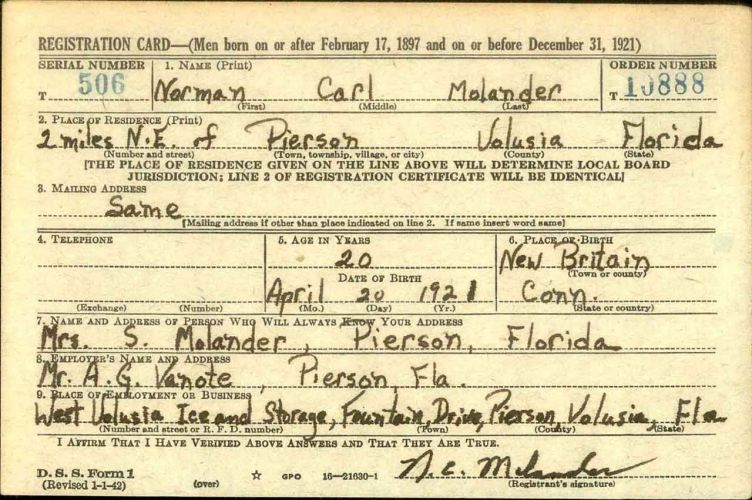 REGISTRATION CARD—(Men born on or after February 17, 1897 and on or before December 31, 1921)
SERIAL NUMBER 1. NAME (Print) ORDER NUMBER
T 506 Norman Carl Molander T 10888
(First) (Middle) (Last)
2. PLACE OF RESIDENCE (Print)
2 miles N.E. of Pierson Volusia Florida
(Number and street) (Town, township, village, or city) (County) (State)
[THE PLACE OF RESIDENCE GIVEN ON THE LINE ABOVE WILL DETERMINE LOCAL BOARD
JURISDICTION; LINE 2 OF REGISTRATION CERTIFICATE WILL BE IDENTICAL]
3. MAILING ADDRESS
Same
[Mailing address if other than place indicated on line 2. If same insert word same]
4. TELEPHONE 5. AGE IN YEARS 6. PLACE OF BIRTH
20 New Britain
DATE OF BIRTH (Town or county)
April 20 1921 Conn.
(Exchange) (Number) (Mo.) (Day) (Yr.) (State or country)
7. NAME AND ADDRESS OF PERSON WHO WILL ALWAYS KNOW YOUR ADDRESS
Mrs. S. Molander, Pierson, Florida
8. EMPLOYER'S NAME AND ADDRESS
Mr. A.G. Vanote, Pierson, Fla.
9. PLACE OF EMPLOYMENT OR BUSINESS
West Volusia Ice and Storage, Fountain Drive, Pierson, Volusia, Fla
(Number and street or R. F. D. number) (Town) (County) (State)
I AFFIRM THAT I HAVE VERIFIED ABOVE ANSWERS AND THAT THEY ARE TRUE.
D. S. S. Form 1
(Revised 1-1-42) (over) ☆ GPO 16—21630-1 N.C. Molander
(Registrant's signature)